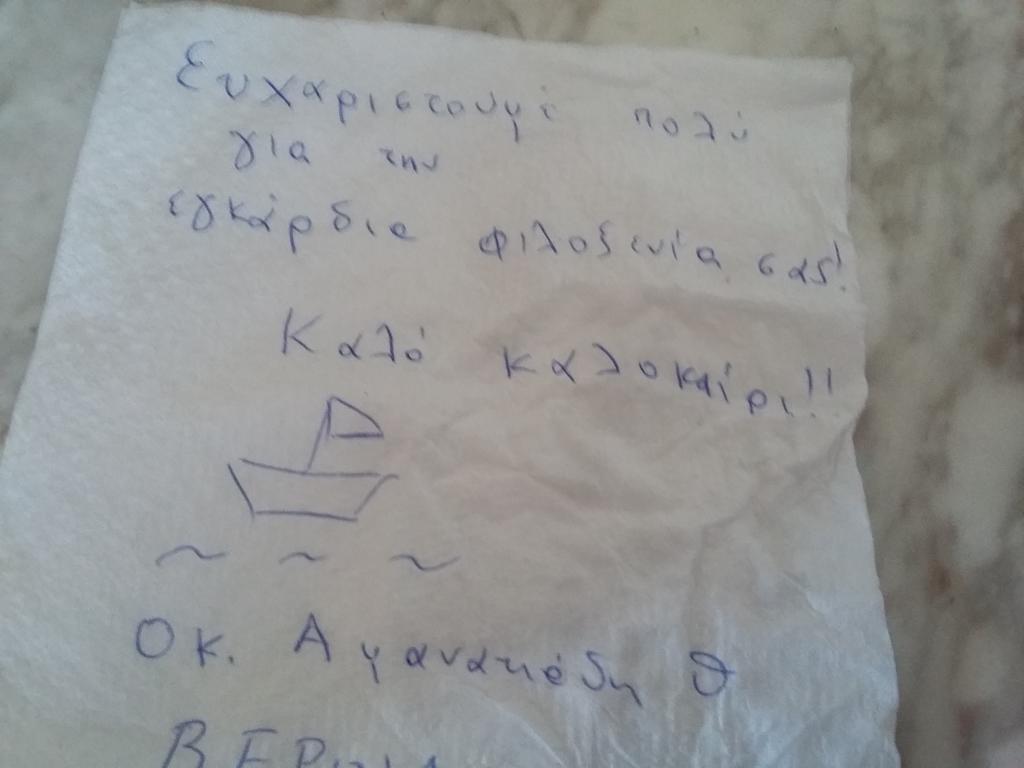 Ευχαριστουμέ πολύ
για την
εγκάρδια φιλοξενία σας!
Καλό καλοκαίρι!!
Οικ. Αμανατιάδη Θ